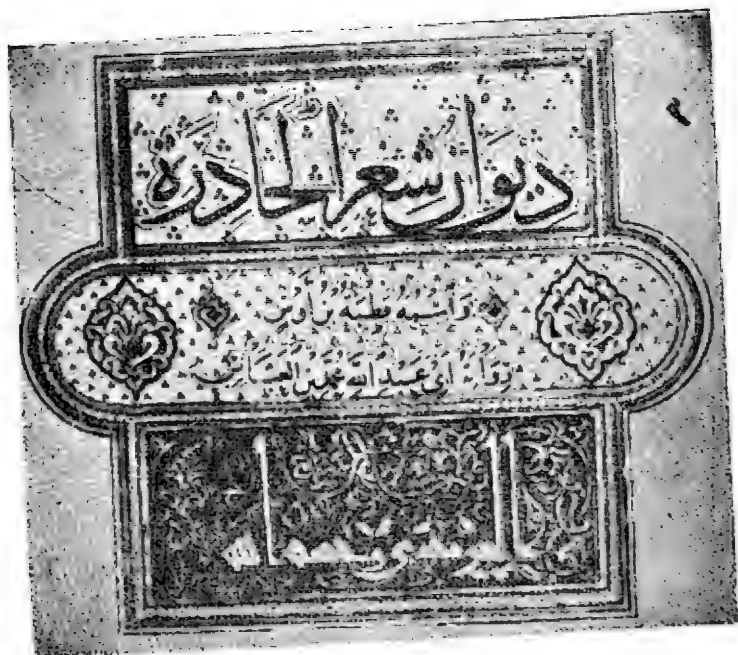 ديوان شعر الحادرة
واسمه قطبة بن أوس
رواية أبي عبد الله محمد بن العباس
اليزيدي رحمه الله